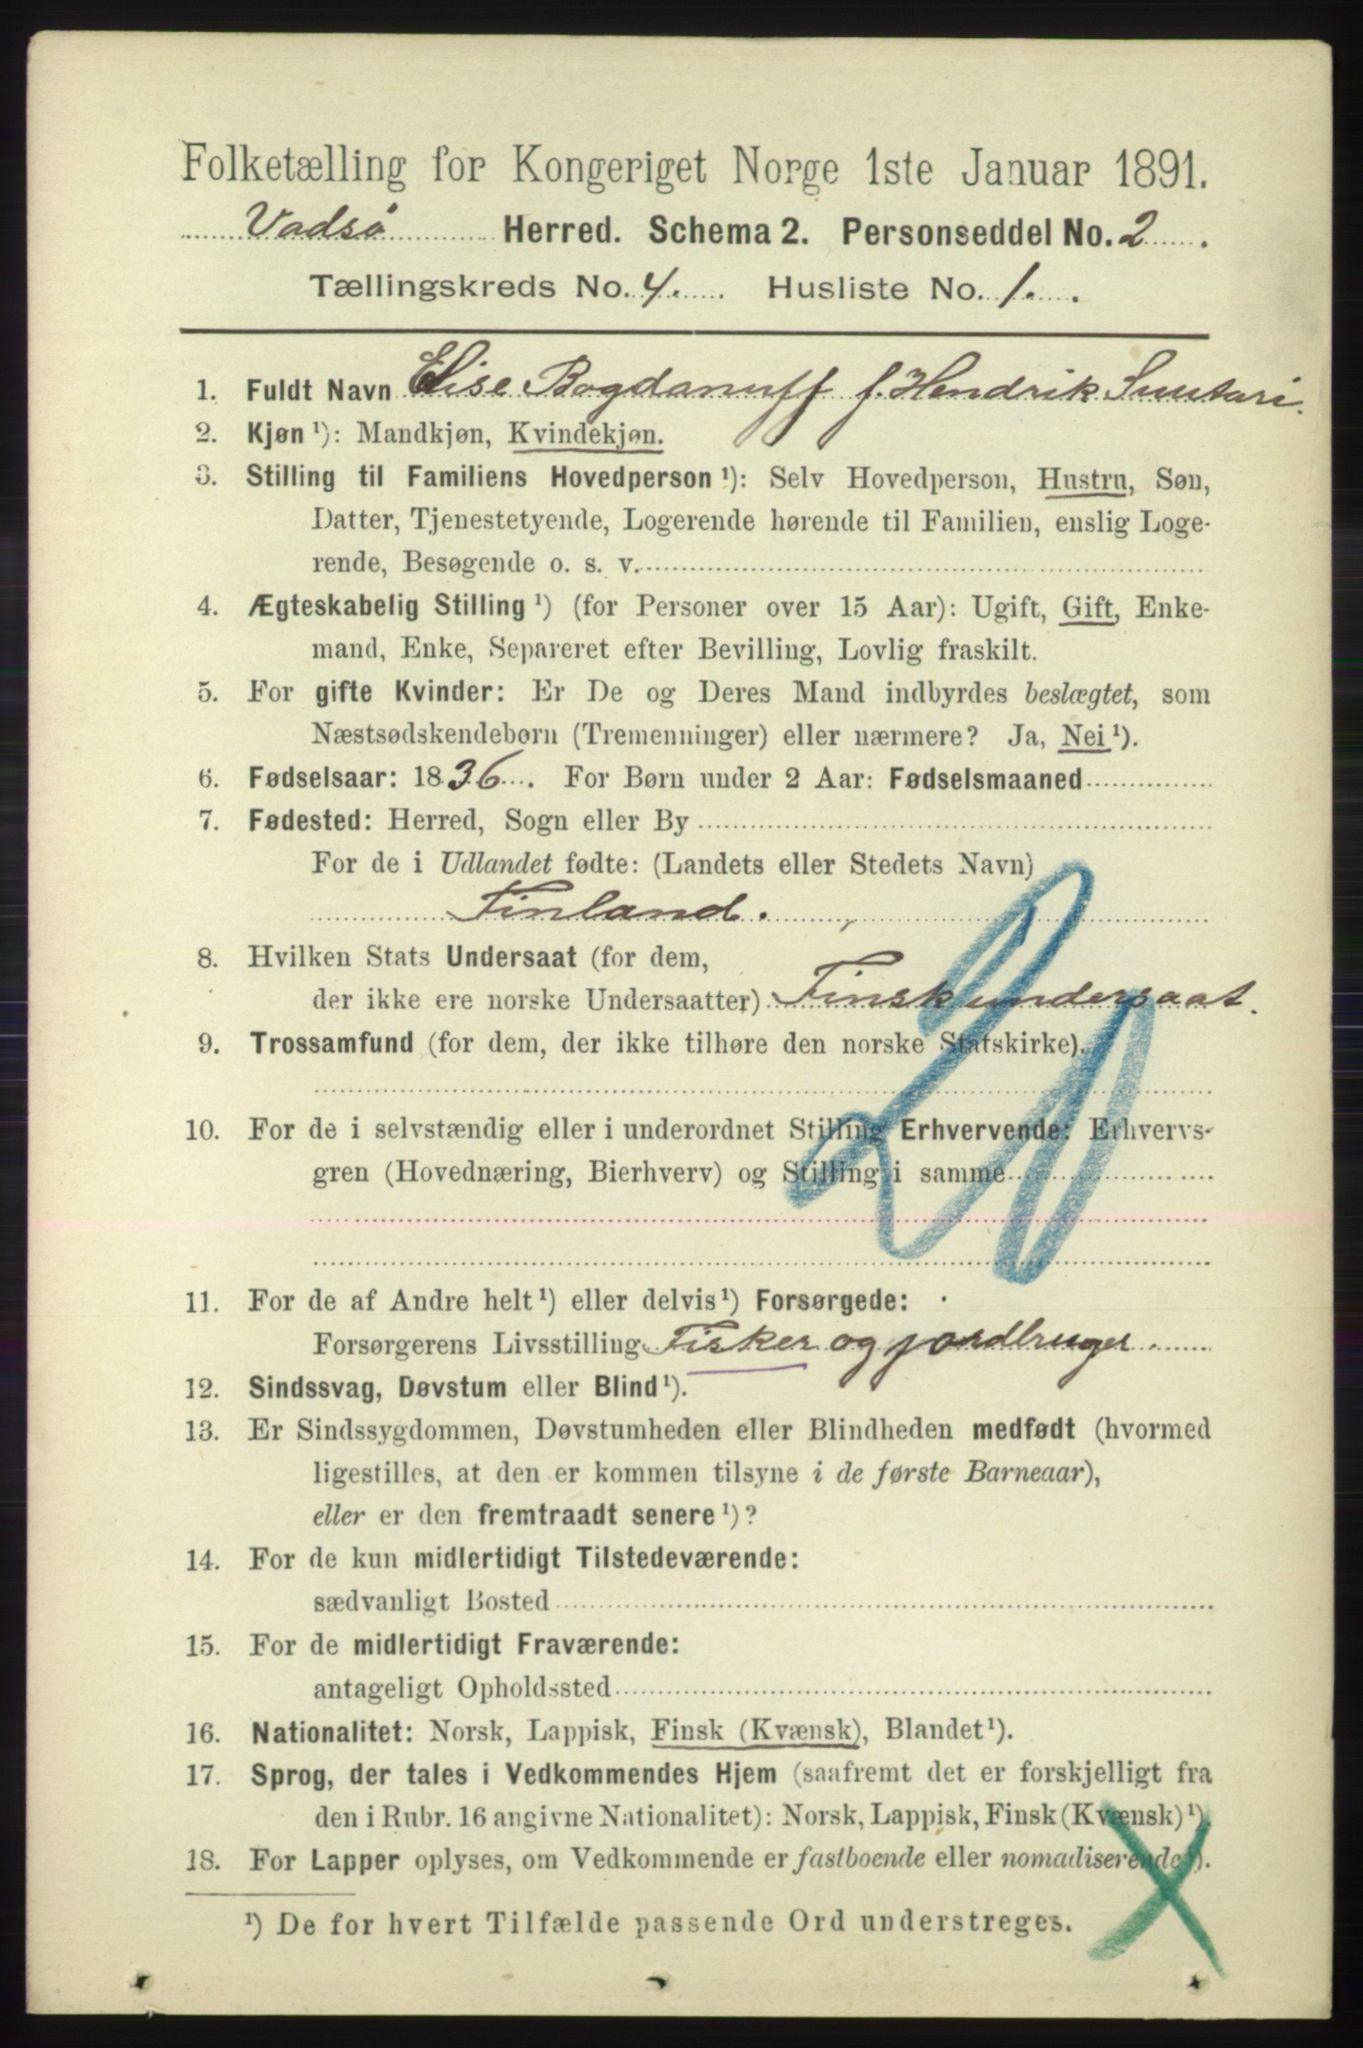 Folketælling for Kongeriget Norge 1ste Januar 1891.
Vadsø Herred. Schema 2. Personseddel No. 2.
Tællingskreds No. 4. Husliste No. 1.
1. Fuldt Navn Elise Bogdanuff f. Hendrik Suutari.
2. Kjøn ¹): Mandkjøn, Kvindekjøn.
3. Stilling til Familiens Hovedperson ¹): Selv Hovedperson, Hustru, Søn,
Datter, Tjenestetyende, Logerende hørende til Familien, enslig Loge-
rende, Besøgende o. s. v.
4. Ægteskabelig Stilling ¹) (for Personer over 15 Aar): Ugift, Gift, Enke-
mand, Enke, Separeret efter Bevilling, Lovlig fraskilt.
5. For gifte Kvinder: Er De og Deres Mand indbyrdes beslægtet, som
Næstsødskendebørn (Tremenninger) eller nærmere? Ja, Nei ¹).
6. Fødselsaar: 1836. For Børn under 2 Aar: Fødselsmaaned
7. Fødested: Herred, Sogn eller By
For de i Udlandet fødte: (Landets eller Stedets Navn)
Finland.
8. Hvilken Stats Undersaat (for dem,
der ikke ere norske Undersaatter) Finsk undersaat.
9. Trossamfund (for dem, der ikke tilhøre den norske Statskirke).
10. For de i selvstændig eller i underordnet Stilling Erhvervende: Erhvervs-
gren (Hovednæring, Bierhverv) og Stilling i samme
11. For de af Andre helt ¹) eller delvis ¹) Forsørgede:
Forsørgerens Livsstilling Fisker og jordbruger.
12. Sindssvag, Døvstum eller Blind ¹).
13. Er Sindssygdommen, Døvstumheden eller Blindheden medfødt (hvormed
ligestilles, at den er kommen tilsyne i de første Barneaar),
eller er den fremtraadt senere ¹)?
14. For de kun midlertidigt Tilstedeværende:
sædvanligt Bosted
15. For de midlertidigt Fraværende:
antageligt Opholdssted
16. Nationalitet: Norsk, Lappisk, Finsk (Kvænsk), Blandet ¹).
17. Sprog, der tales i Vedkommendes Hjem (saafremt det er forskjelligt fra
den i Rubr. 16 angivne Nationalitet): Norsk, Lappisk, Finsk (Kvænsk) ¹).
18. For Lapper oplyses, om Vedkommende er fastboende eller nomadiserende ¹).
¹) De for hvert Tilfælde passende Ord understreges.